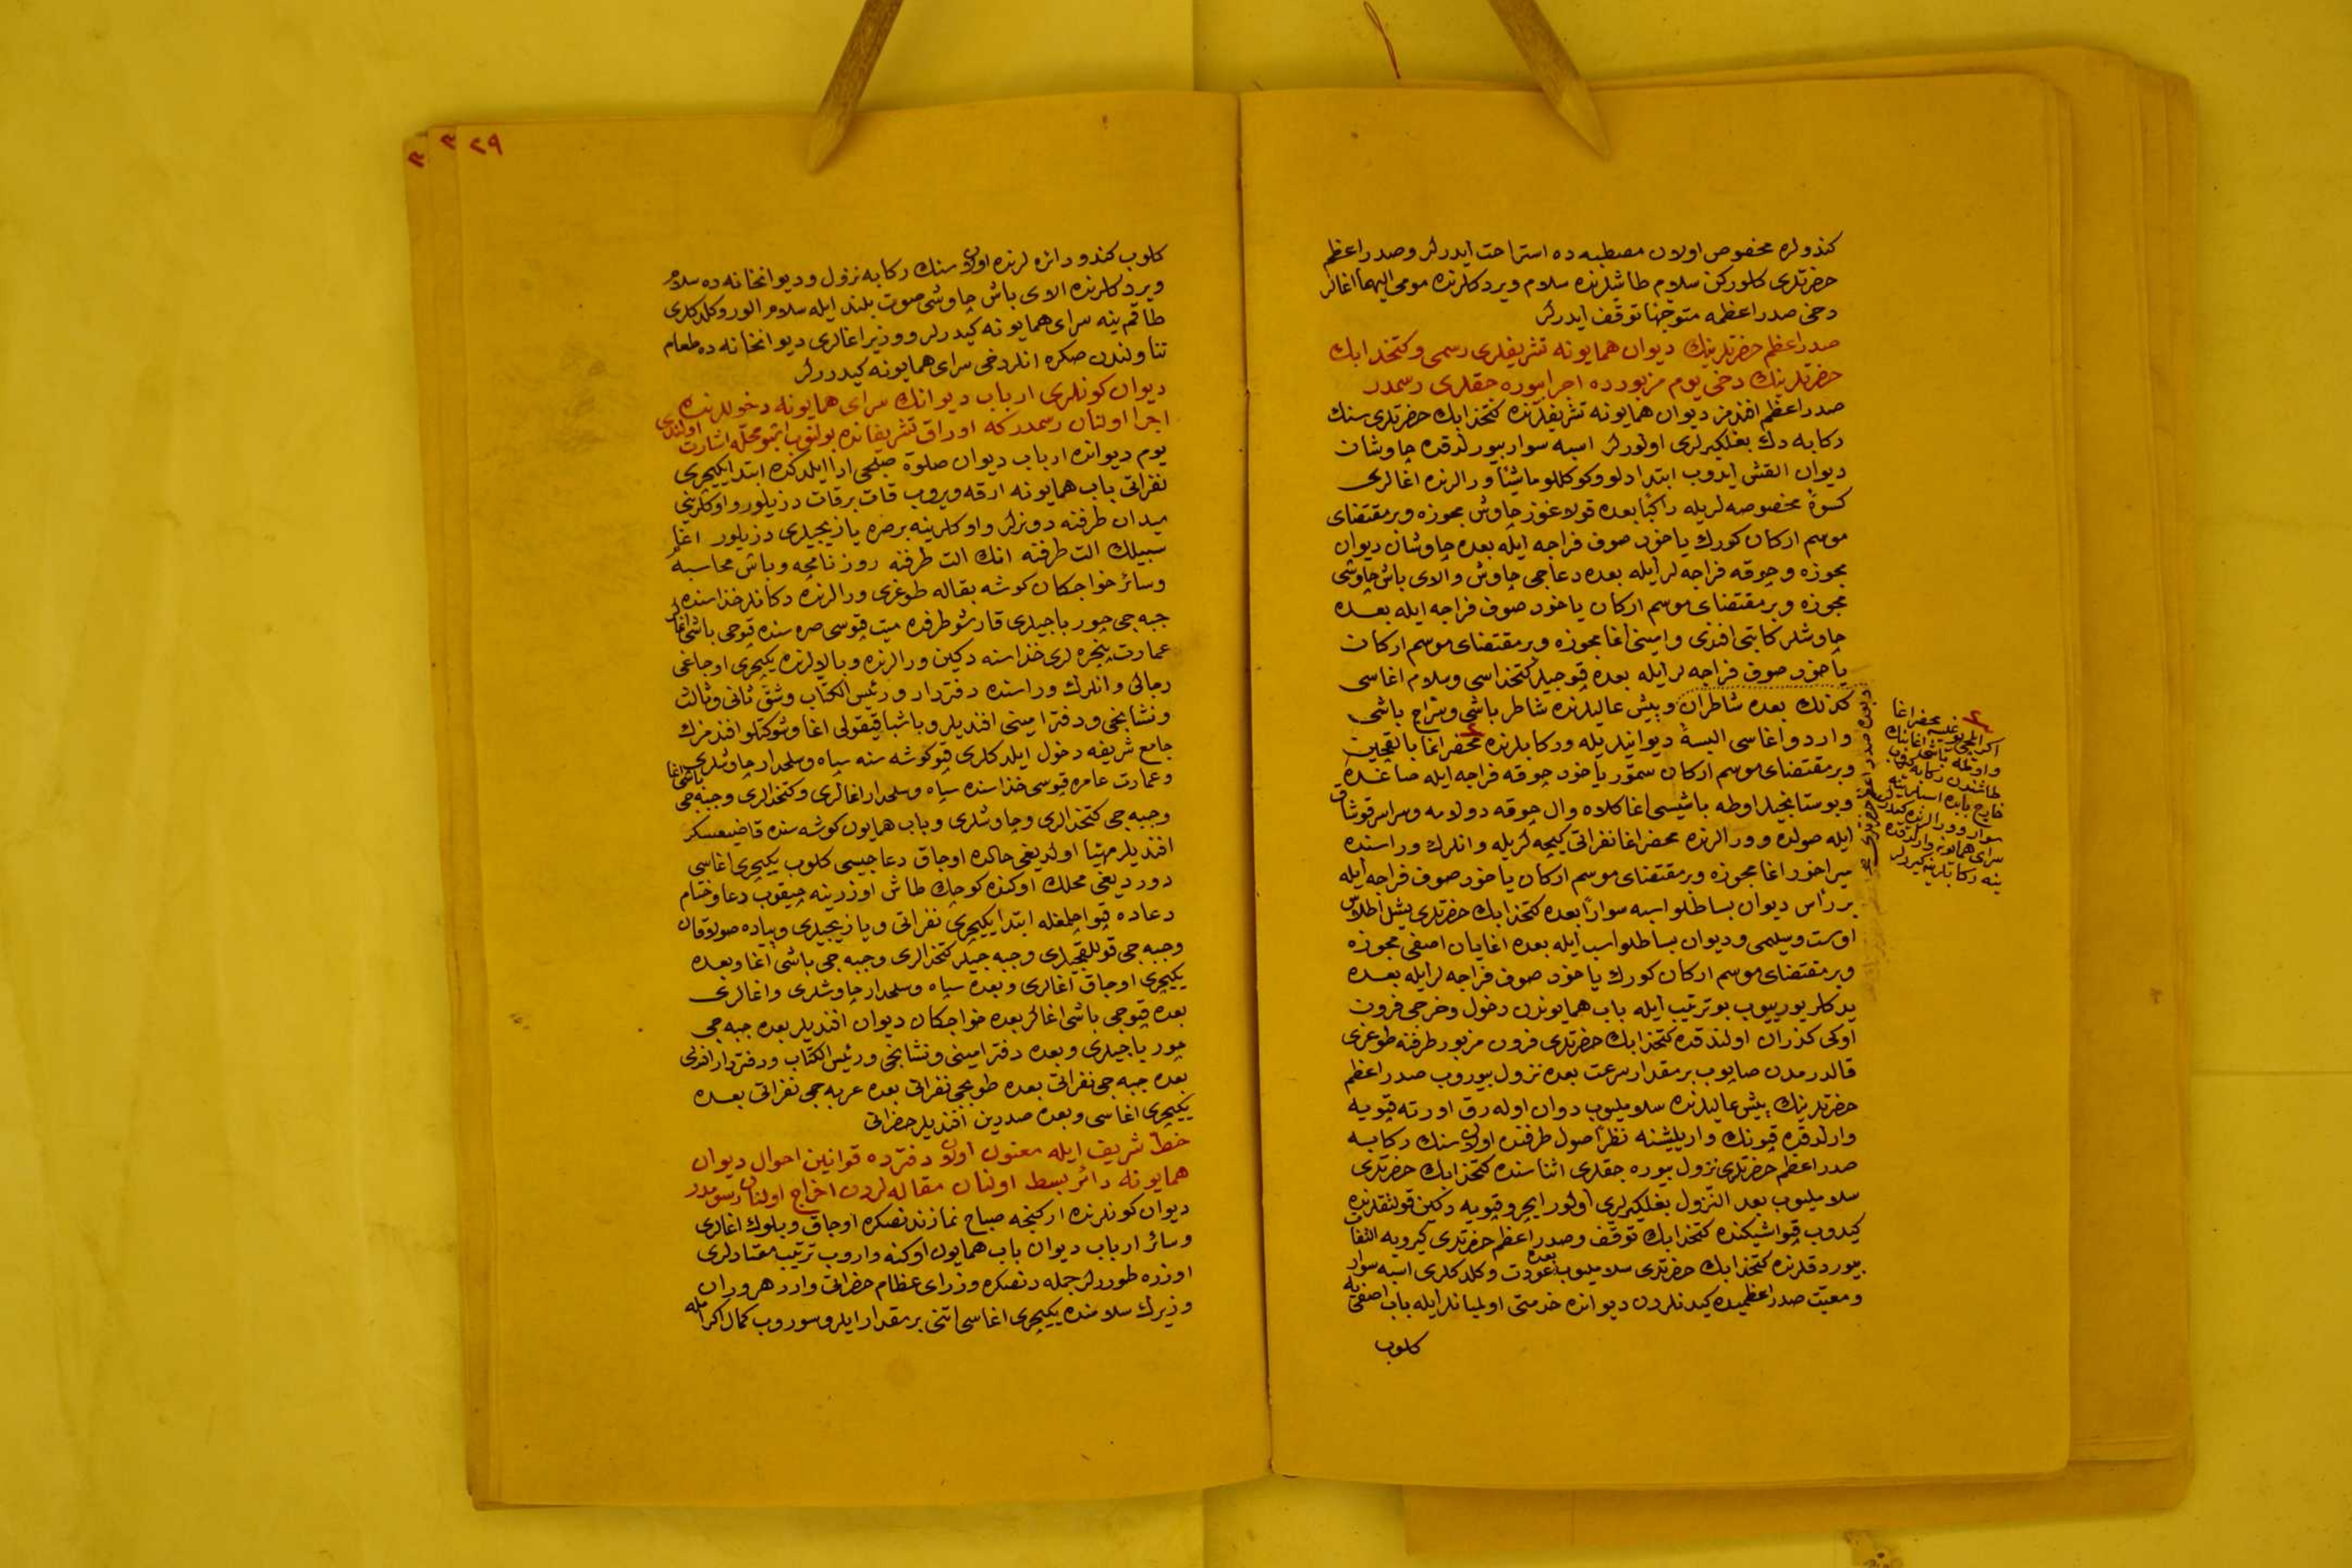 كندولره مخصوص اولان مصطبه ده استراحت ايدرلر وصدر اعظم
حضرتلرى كلوركن سلام طاشلرنده سلام ويردكلرنده مومى اليهما اغالر
دخى صدر اعظمه متوجّها توقف ايدرلر
صدر اعظم حضرتلرينك ديوان همايونه تشريفلرى رسمى وكتخدا بك
حضرتلرينك دخى يوم مزبورده اجرا بيوره جقلرى رسمدر
صدر اعظم افندمز ديوان همايونه تشريفلرنده كتخدا بك حضرتلرى سنك
ركابه دك بغلكيرلرى اولورلر اسبه سوار بيورلدقده چاوشان
ديوان القش ايدوب ابتدا دلو وكوكللو ماشيًا ورالرنده اغالرى
كسوۀ مخصوصه لريله راكبًا بعده قولاغوز چاوش مجوزه وبر مقتضاى
موسم اركان كورك ياخود صوف فراجه ايله بعده چاوشان ديوان
مجوزه وچوقه فراجه لر ايله بعده دعاجى چاوش والاى باش چاوشى
مجوزه وبر مقتضاى موسم اركان ياخود صوف فراجه ايله بعده
چاوشلر كاتبى افندى وامينى اغا مجوزه وبر مقتضاى موسم اركان
ياخود صوف فراجه لر ايله بعده قپوجيلر كتخداسى وسلام اغاسى
كذلك بعده شاطران وپيش عاليلرنده شاطر باشى وسراج باشى
واردو اغاسى البسۀ ديوانيلريله وركابلرنده محضر اغا بالقچين
وبر مقتضاى موسم اركان سمّور ياخود چوقه فراجه ايله صاغده
وبوستانجيلر اوطه باشيسى اغا كلاه وال چوقه دولامه وسراسر قوشاق
ايله صولده وورالرنده محضر اغا نفراتى كيچه لريله وانلرك وراسنده
ميراخور اغا مجوزه وبر مقتضاى موسم اركان ياخود صوف فراجه ايله
بر رأس ديوان بساطلو اسبه سوارًا بعده كتخدا بك حضرتلرى يشيل اطلس
اوست وسليمى وديوان بساطلو اسب ايله بعده اغايان اصفى مجوزه
وبر مقتضاى موسم اركان كورك ياخود صوف فراجه لر ايله بعده
يدكلر يورييوب بو ترتيب ايله باب همايوندن دخول وخرجى فرون
اوكى كذران اولندقده كتخدا بك حضرتلرى فرون مزبور طرفنه طوغرى
قالدرمدن صاپوب بر مقدار سرعت بعده نزول بيوروب صدر اعظم
حضرتلرينك پيش عاليلرنده سلاملیوب دوان اوله رق اورته قپويه
وارلدقده قپونك واريلشنه نظرًا صول طرفنده اولان سنك ركابه
صدر اعظم حضرتلرى نزول بيوره جقلرى اثناسنده كتخدا بك حضرتلرى
سلاملیوب بعد النّزول بغلكيرلرى اولور ايچرو قپويه دكين قولتقلرنده
كيدوب قپو اشيكنده كتخدا بك توقف وصدر اعظم حضرتلرى كيرويه التفات
بيوردقلرنده كتخدا بك حضرتلرى سلاملیوب بعده عودت وكلدكلرى اسبه سوار
ومعيّت صدر اعظميده كيدنلردن ديوانده خدمتى اولميانلر ايله باب اصفى يه
كلوب
اكر ايلچى وغليسه محضر اغا
واوطه باشى اغا سنك
طاشندن ركابه كلوب
خارج بابده اسبلرينه
سوار وورالرنده كيدرلر
سراى همايونه وارلدقده
ينه ركابلرينه كيررلر
وبعده صدر اعظم حضرتلرى
٢٩
كلوب كندو دائره لرنده اولان سنك ركابه نزول وديوانخانه ده سلام
ويردكلرنده الاى باش چاوشى صوت بلند ايله سلام الور وكلدكلرى
طاقم ينه سراى همايونه كيدرلر ووزير اغالرى ديوانخانه ده طعام
تناولندن صكره انلر دخى سراى همايونه كيدرلر
ديوان كونلرى ارباب ديوانك سراى همايونه دخوللرنده
اجرا اولنان رسمدر كه اوراق تشريفاتده بولنوب اشبو محلّه اشارت اولندى
يوم ديوانده ارباب ديوان صلوة صبحى ادا ايلدكده ابتدا يكيچرى
نفراتى باب همايونه ارقه ويروب قات بر قات دزيلور واوكلرينى
ميدان طرفنه دونرلر واوكلرينه بر صره يازيجيلرى دزيلور اغا
سبيلك الت طرفنه انك الت طرفنه روزنامچه وباش محاسبه
وسائر خواجكان كوشه بقاله طوغرى ورالرنده دكانلر حذاسنده
جبه جى چورباجيلرى قارشو طرفده ميت قپوسى صره سنده قپوجى باشى اغالر
عمارت پنجره لرى حذاسنه دكين ورالرنده وبالالرنده يكيچرى اوجاغى
رجالى وانلرك وراسنده دفتردار ورئيس الكتّاب وشقّ ثانى وثالث
ونشانجى ودفتر امينى افنديلر وباشباقيقولى اغا وشوكتلو افندمزك
جامع شريفه دخول ايلدكلرى قپو كوشه سنه سپاه وسلحدار چاوشلرى
وعمارت عامره قپوسى حذاسنده سپاه وسلحدار اغالرى وكتخدالرى وجبه جى باشى اغا
وجبه جى كتخدالرى وچاوشلرى وباب همايون كوشه سنده قاضيعسكر
افنديلر مهيّا اولديغى حالده اوجاق دعاجيسى كلوب يكيچرى اغاسى
دورديغى محلك اوكنده كوچك طاش اوزرينه چيقوب دعا وختام
دعاده قپو اچلمغله ابتدا يكيچرى نفراتى ويازيجيلرى وپياده صولاقان
وجبه جى قوللقجيلرى وجبه جيلر كتخدالرى وجبه جى باشى اغا وبعده
يكيچرى اوجاق اغالرى وبعده سپاه وسلحدار چاوشلرى واغالرى
بعده قپوجى باشى اغالر بعده خواجكان ديوان افنديلر بعده جبه جى
چورباجيلرى وبعده دفتر امينى ونشانجى ورئيس الكتّاب ودفتردار افندى
بعده جبه جى نفراتى بعده طوپجى نفراتى بعده عربه جى نفراتى بعده
يكيچرى اغاسى وبعده صدرين افنديلر حضراتى
خطّ شريف ايله معنون اولان دفترده قوانين احوال ديوان
همايونه دائر بسط اولنان مقاله لردن اخراج اولنان رسومدر
ديوان كونلرنده اركنجه صباح نمازندنصكره اوجاق وبلوك اغالرى
وسائر ارباب ديوان باب همايون اوكنه واروب ترتيب معتادلرى
اوزره طورلر جمله دنصكره وزراى عظام حضراتى وارر هر وران
وزيرك سلامنده يكيچرى اغاسى اتنى بر مقدار ايلرو سوروب كمال اكرامله